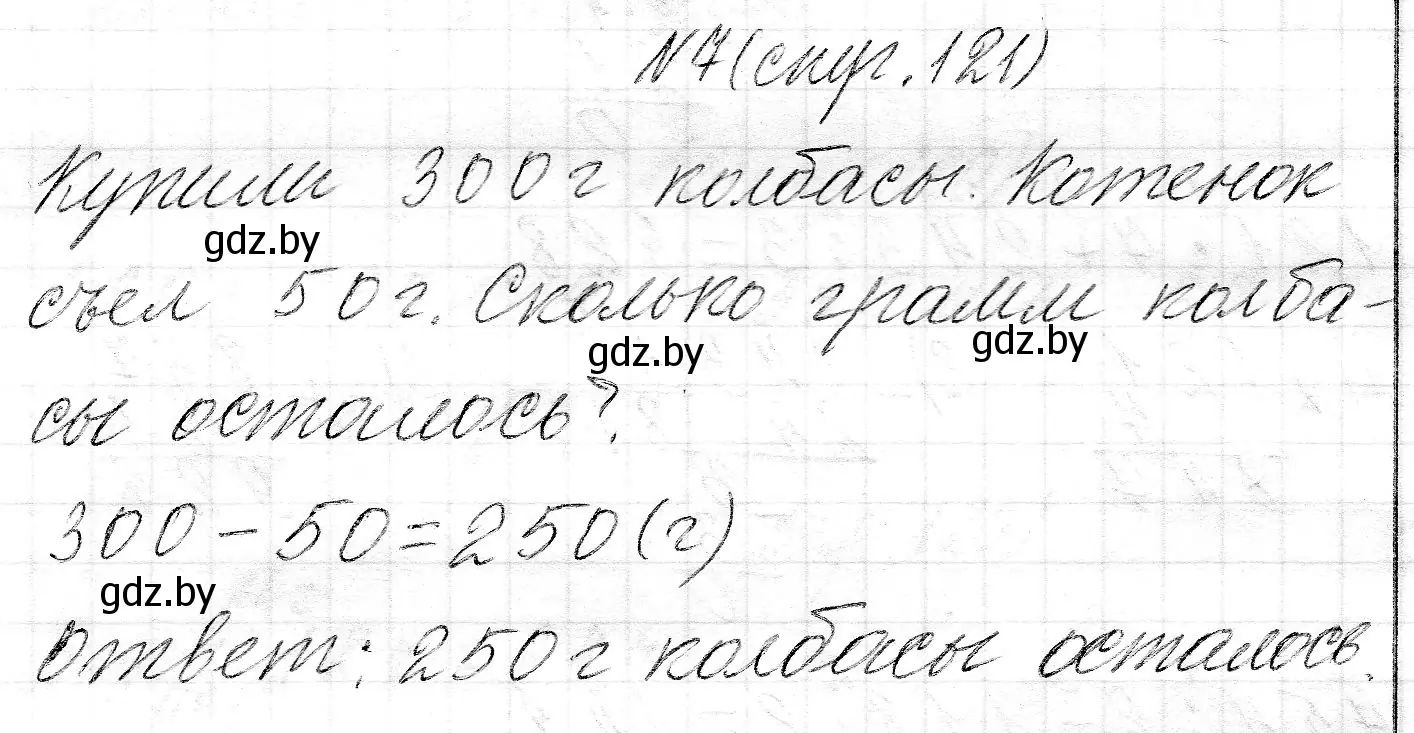 №7(скуг.121)
Купили 300г колбасы. Котенок
gdz.by
съел 50г. Сколько грамм колба-
gdz.by
gdz.by
сы осталось?
300-50=250(г)
gdz.by
Ответ: 250г колбасы осталось.